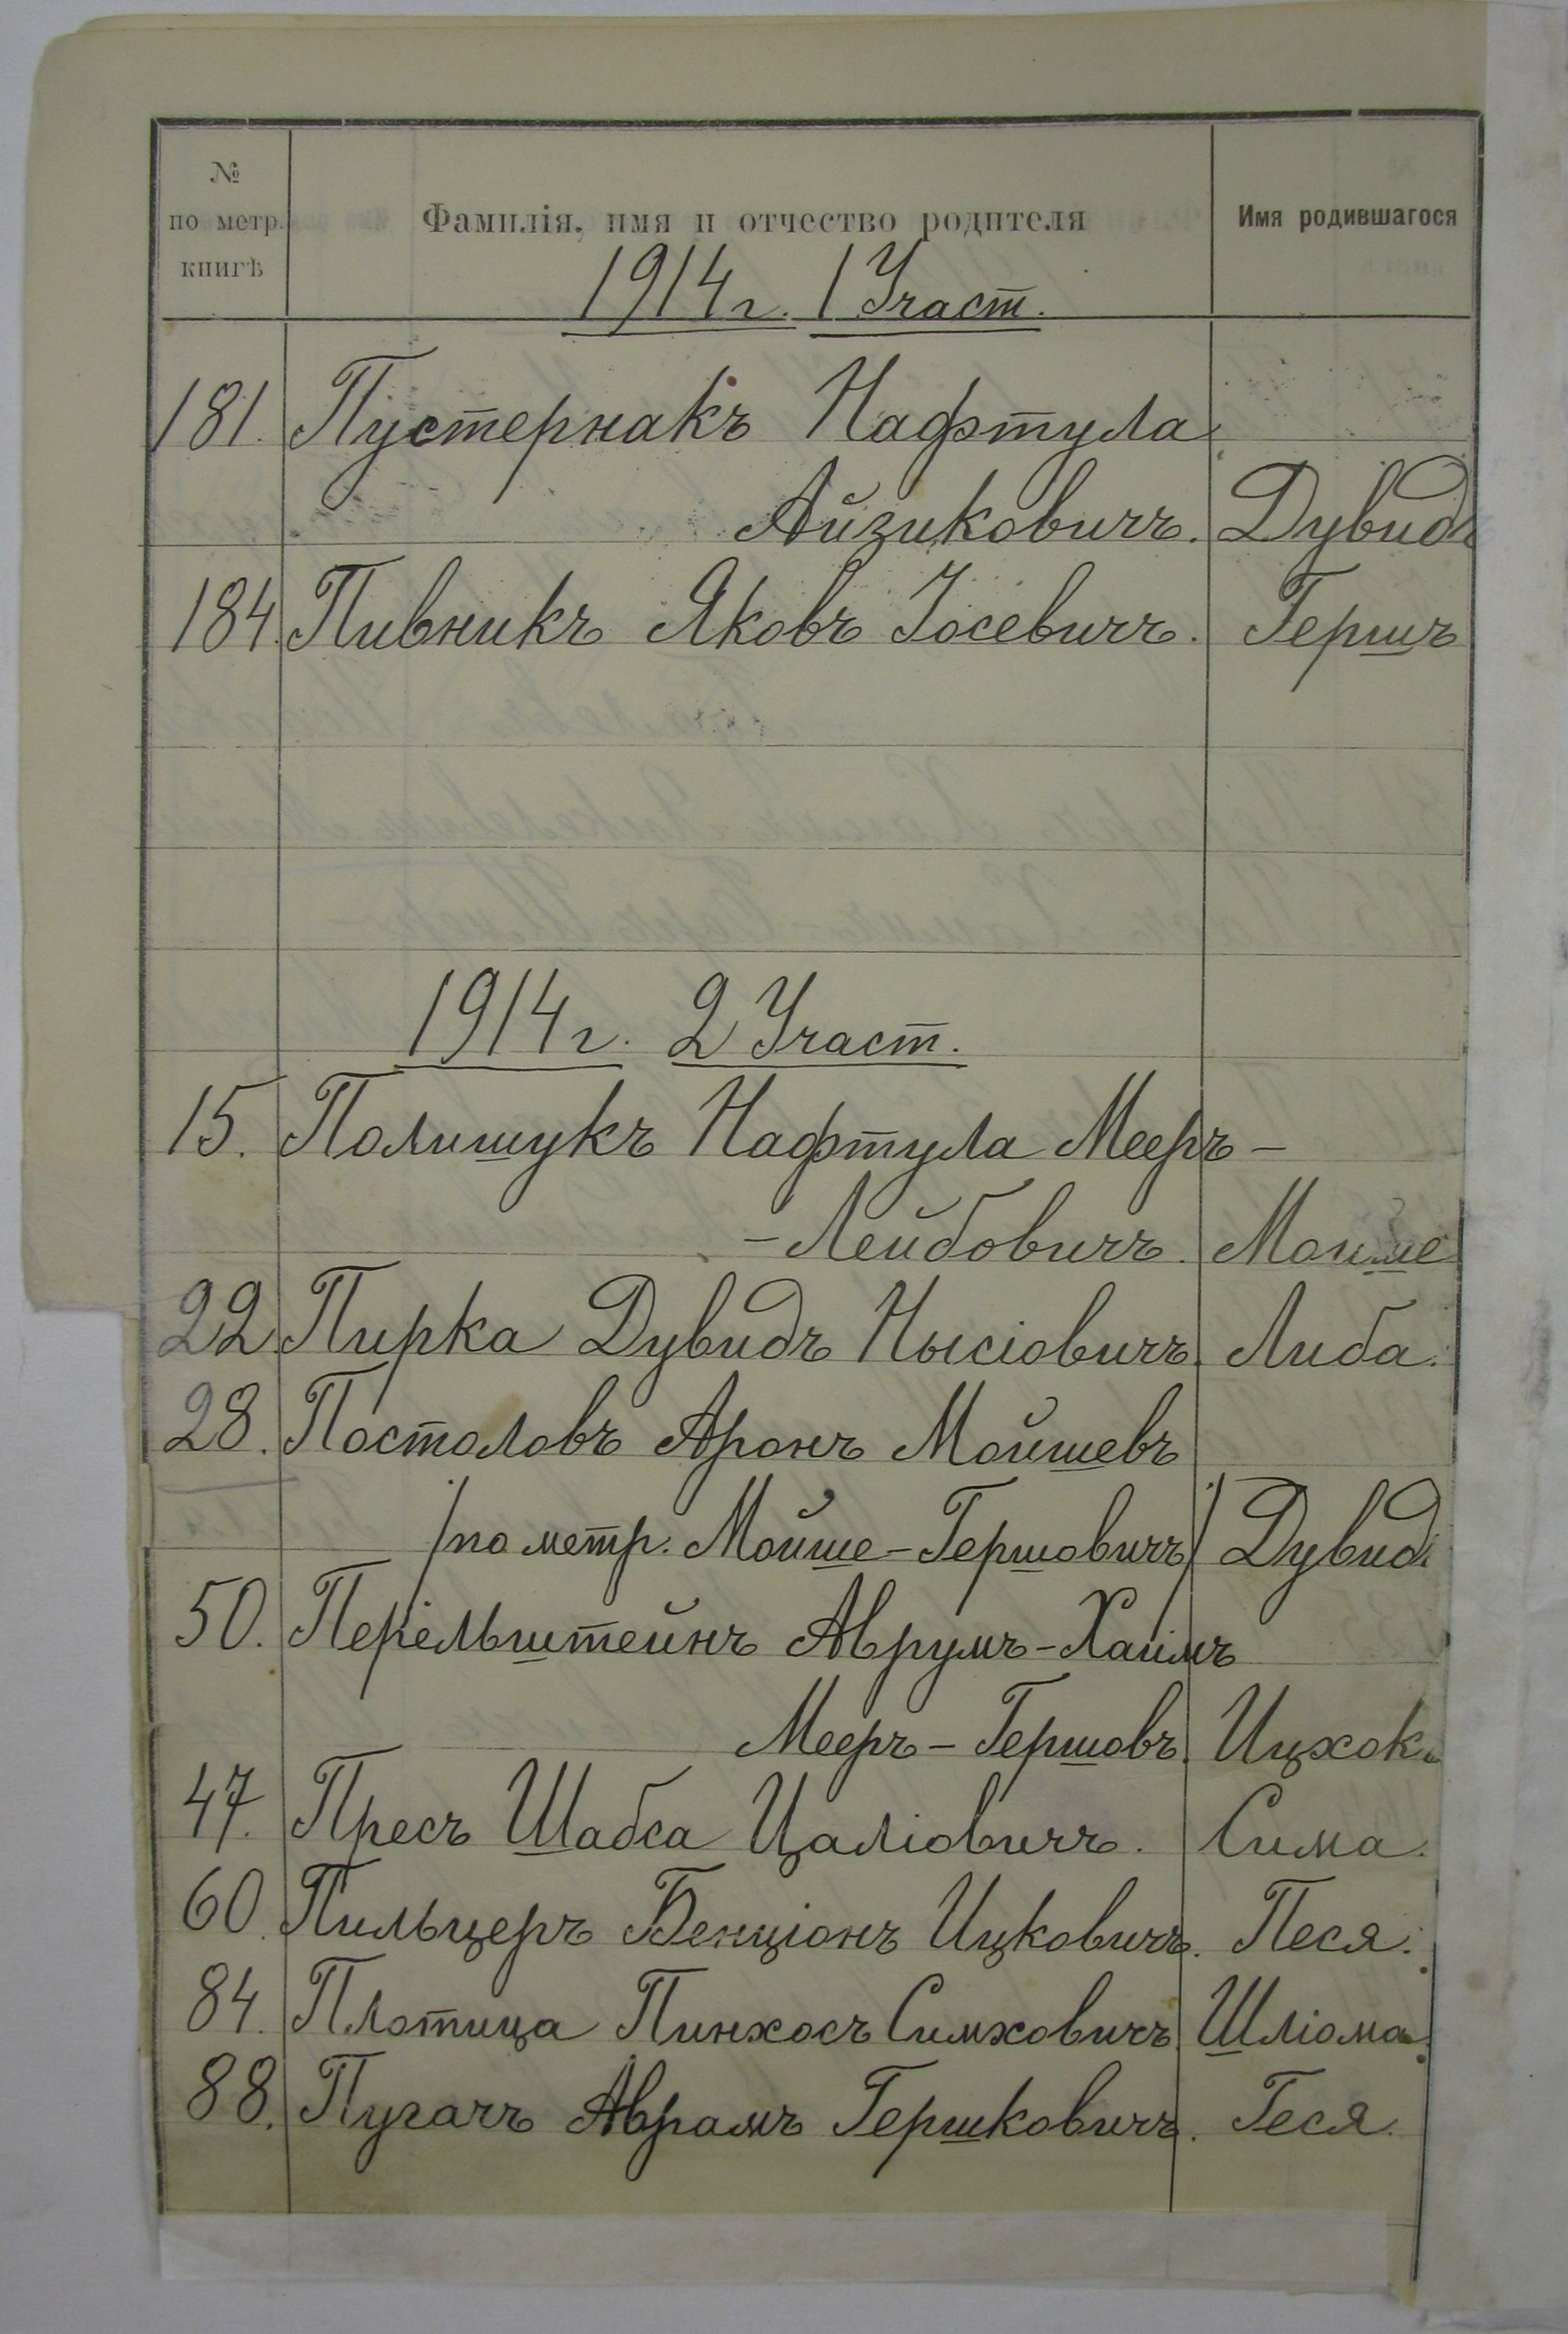 №
по метр.
книгѣ
Фамилія, имя и отчество родителя
Имя родившагося
1914 г. 1 Участ.
181. Пустернакъ Нафтула
Айзиковичъ. Дувидъ
184. Пивникъ Яковъ Іосевичъ. Гершъ
1914 г. 2 Участ.
15. Полишукъ Нафтула Мееръ-
-Лейбовичъ. Мойше
22 Пирка Дувидъ Нысіовичъ. Либа.
28. Постоловъ Аронъ Мойшевъ
/по метр. Мойше-Гершовичъ/ Дувидъ
50. Перельштейнъ Аврумъ-Хаимъ
Мееръ-Гершовъ. Ицхокъ
47. Пресъ Шабса Цаліовичъ. Сима.
60. Пильцеръ Бенціонъ Ицковичъ. Песя.
84. Плотица Пинхосъ Симховичъ. Шліома.
88. Пугачъ Аврамъ Гершковичъ. Геся.